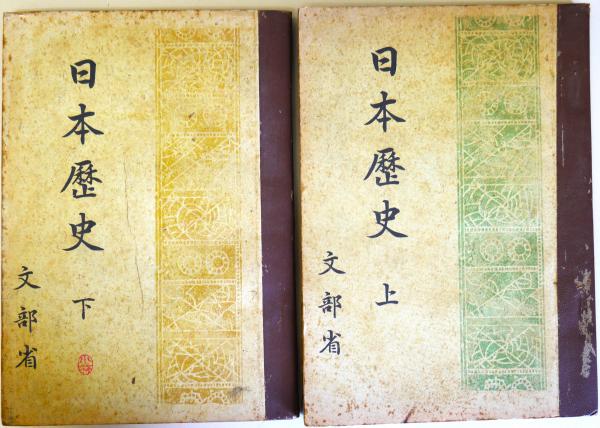 日本歴史 下
文部省
日本歴史 上
文部省